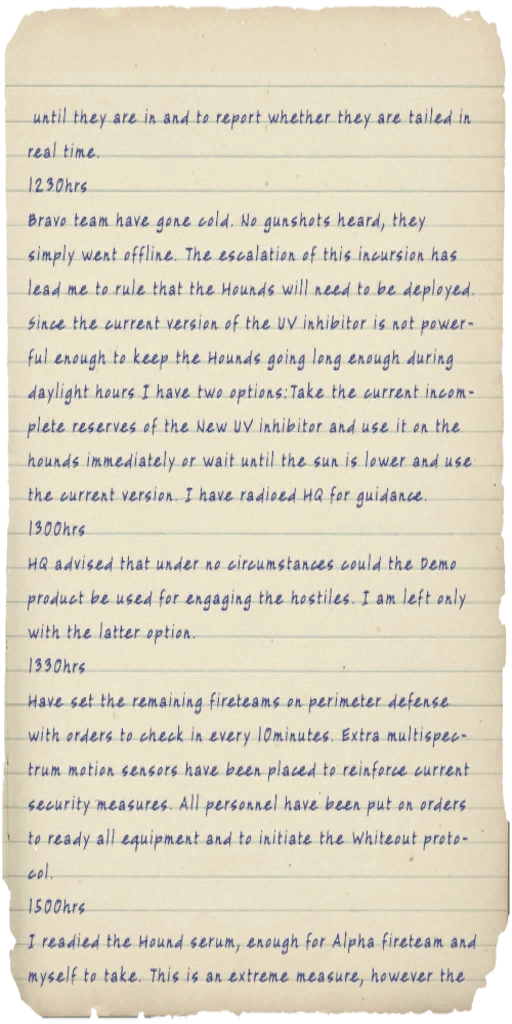 until they are in and to report whether they are tailed in
real time.
1230hrs
Bravo team have gone cold. No gunshots heard, they
simply went offline. The escalation of this incursion has
lead me to rule that the Hounds will need to be deployed.
Since the current version of the UV inhibitor is not power-
ful enough to keep the Hounds going long enough during
daylight hours I have two options:Take the current incom-
plete reserves of the New UV inhibitor and use it on the
hounds immediately or wait until the sun is lower and use
the current version. I have radioed HQ for guidance.
1300hrs
HQ advised that under no circumstances could the Demo
product be used for engaging the hostiles. I am left only
with the latter option.
1330hrs
Have set the remaining fireteams on perimeter defense
with orders to check in every 10minutes. Extra multispec-
trum motion sensors have been placed to reinforce current
security measures. All personnel have been put on orders
to ready all equipment and to initiate the Whiteout proto-
col.
1500hrs
I readied the Hound serum, enough for Alpha fireteam and
myself to take. This is an extreme measure, however the